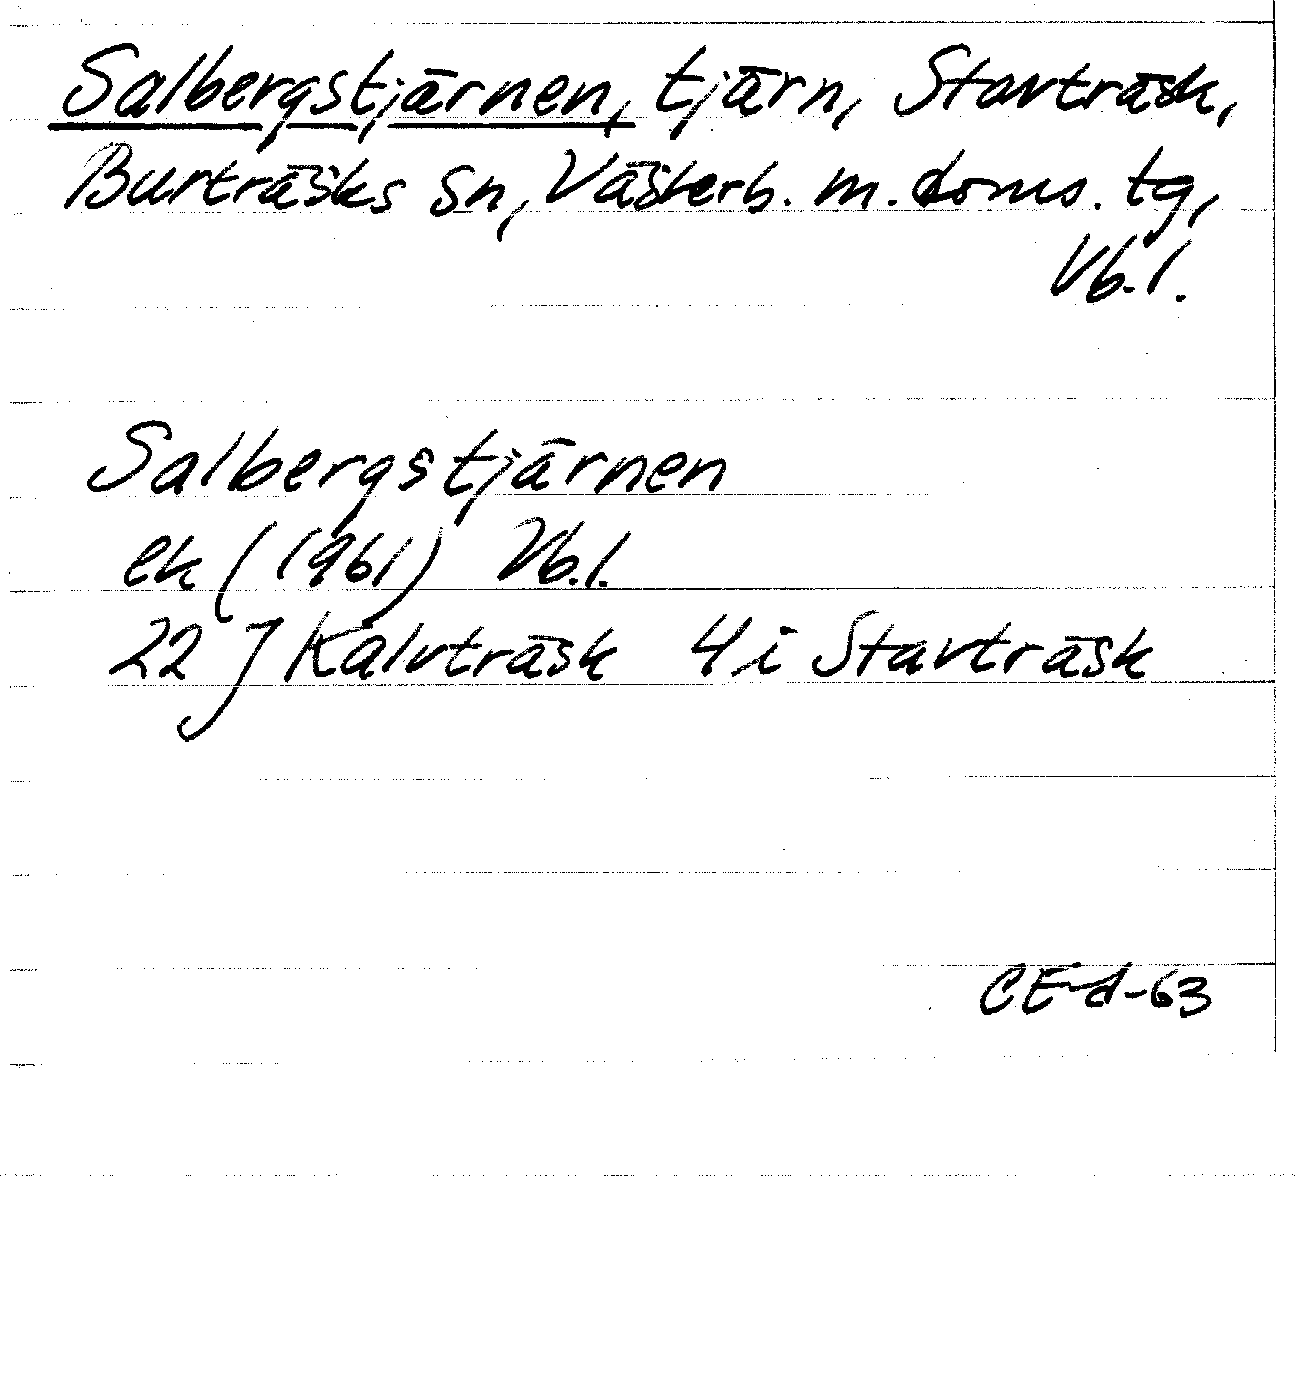 Salbergstjärnen, tjärn, Stavträsk,
Burträsks sn, Västerb. m. doms. tg,
Vb. l.
Salbergstjärnen
ek (1961) Vb. l.
22 J Kalvträsk 4 i Stavträsk
CE-d-63